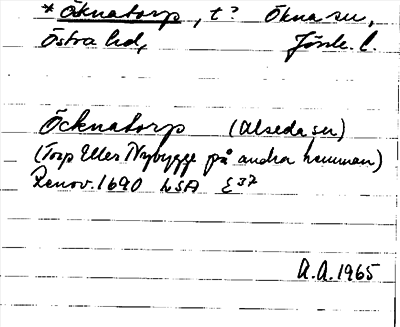 *Öknatorp, t? Ökna sn,
Östra hd, Jönk. l.
Öcknatorp (Alseda sn)
(Torp Eller Nybygge på andra hemman)
Renov. 1690 LSA E37
A.A. 1965